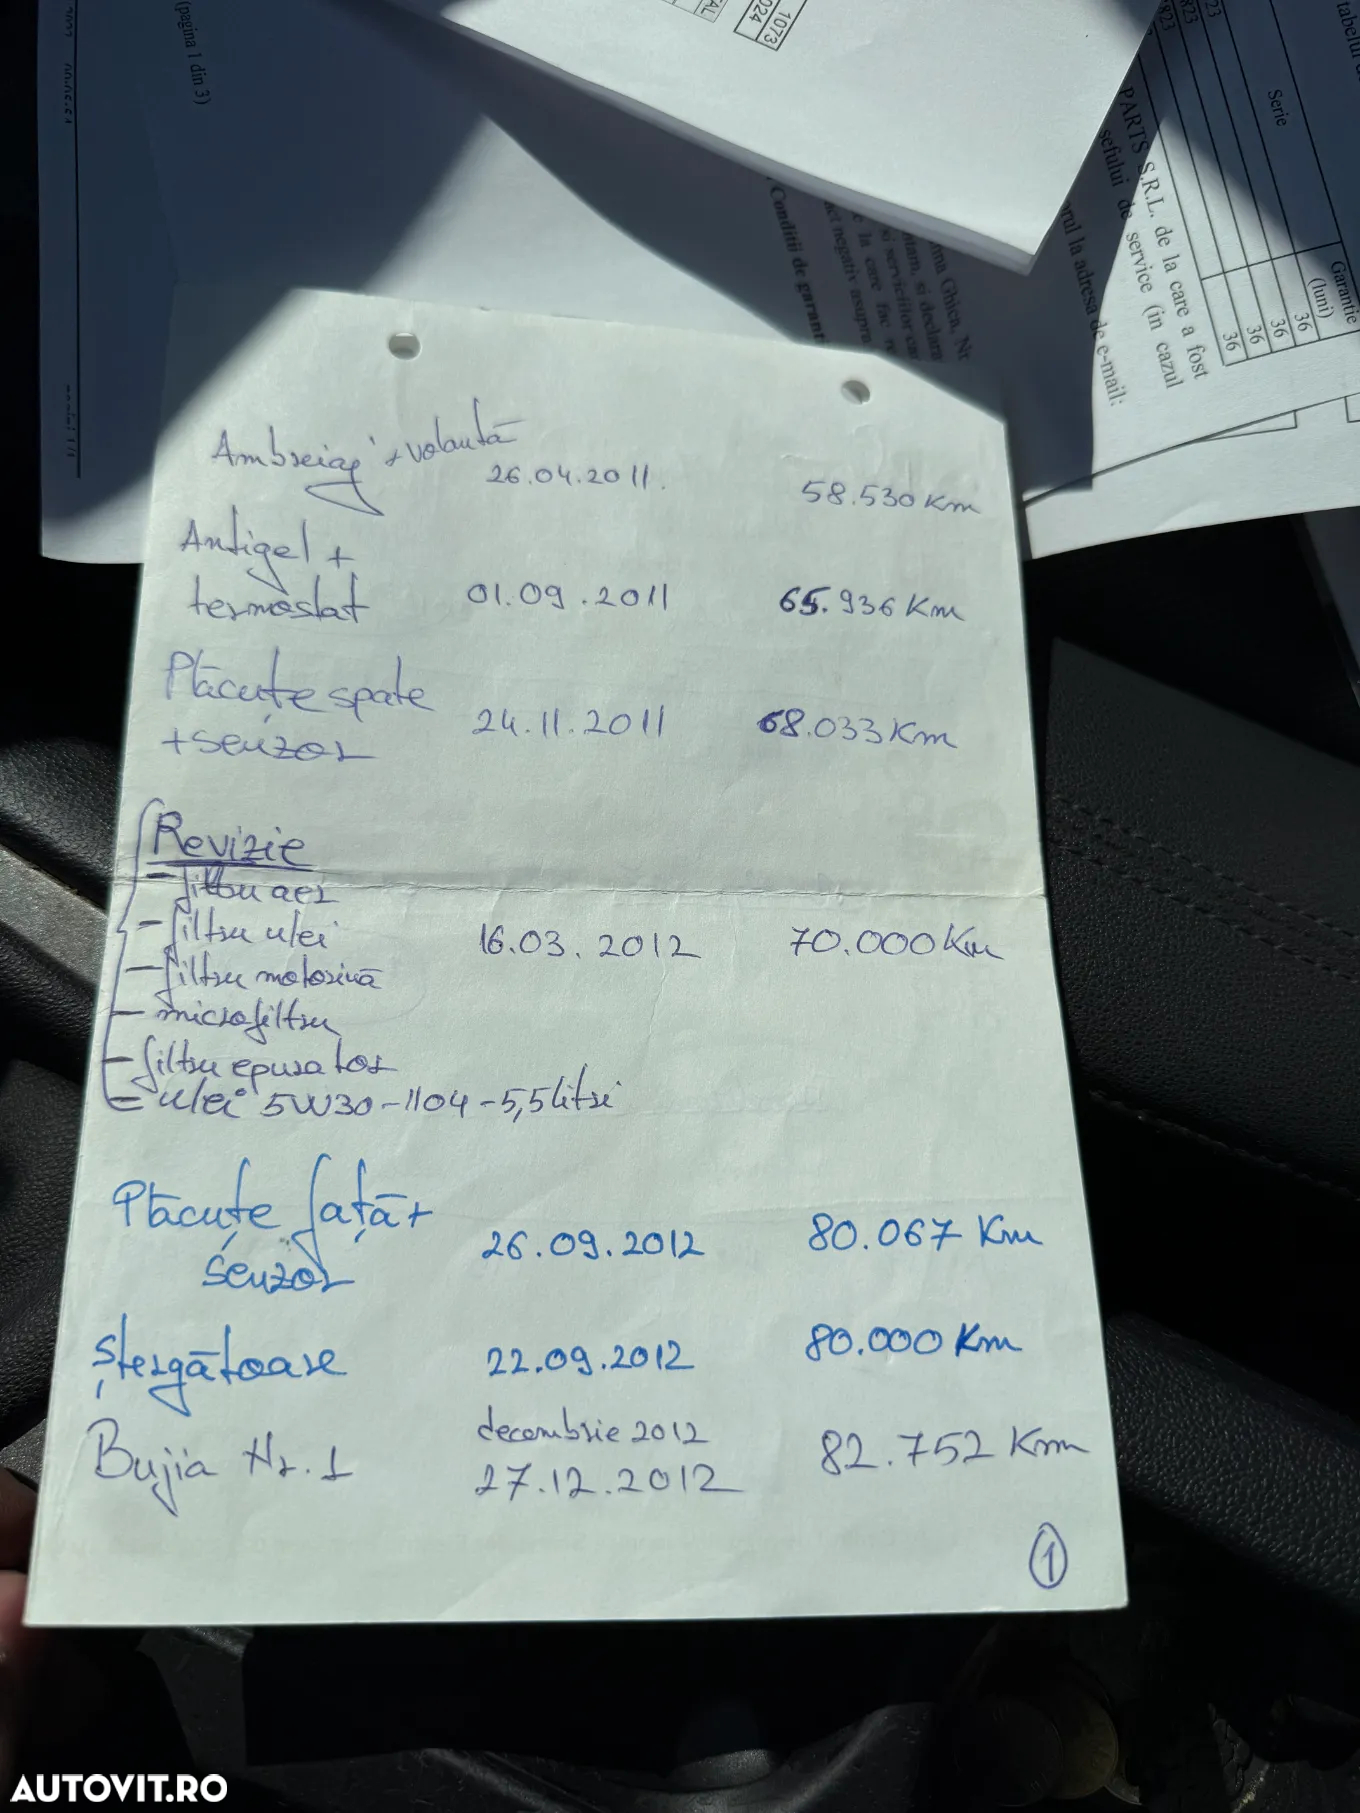 (pagina 1 din 3)
1073
024
TAL
823
tabelul
Serie
Garantie
(luni)
36
36
36
36
PARTS S.R.L. de la care a fost
sefului de service (in cazul
orul la adresa de e-mail:
irma Ghica, Nr
ntam, si declara
si serviciilor
e la care fac
act negativ asupra
Conditii de garanti
Ambreiaj + volantă
26.04.2011. 58.530 Km
Antigel +
termostat 01.09.2011 65.936 Km
Plăcuțe spate
+ senzor 24.11.2011 68.033 Km
Revizie
- filtru aer
- filtru ulei 16.03.2012 70.000 Km
- filtru motorină
- microfiltru
- filtru epurator
- ulei 5W30-1104-5,5litri
Plăcuțe față +
senzor 26.09.2012 80.067 Km
ștergătoare 22.09.2012 80.000 Km
decembrie 2012
Bujia Nr. 1 27.12.2012 82.752 Km
1
AUTOVIT.RO